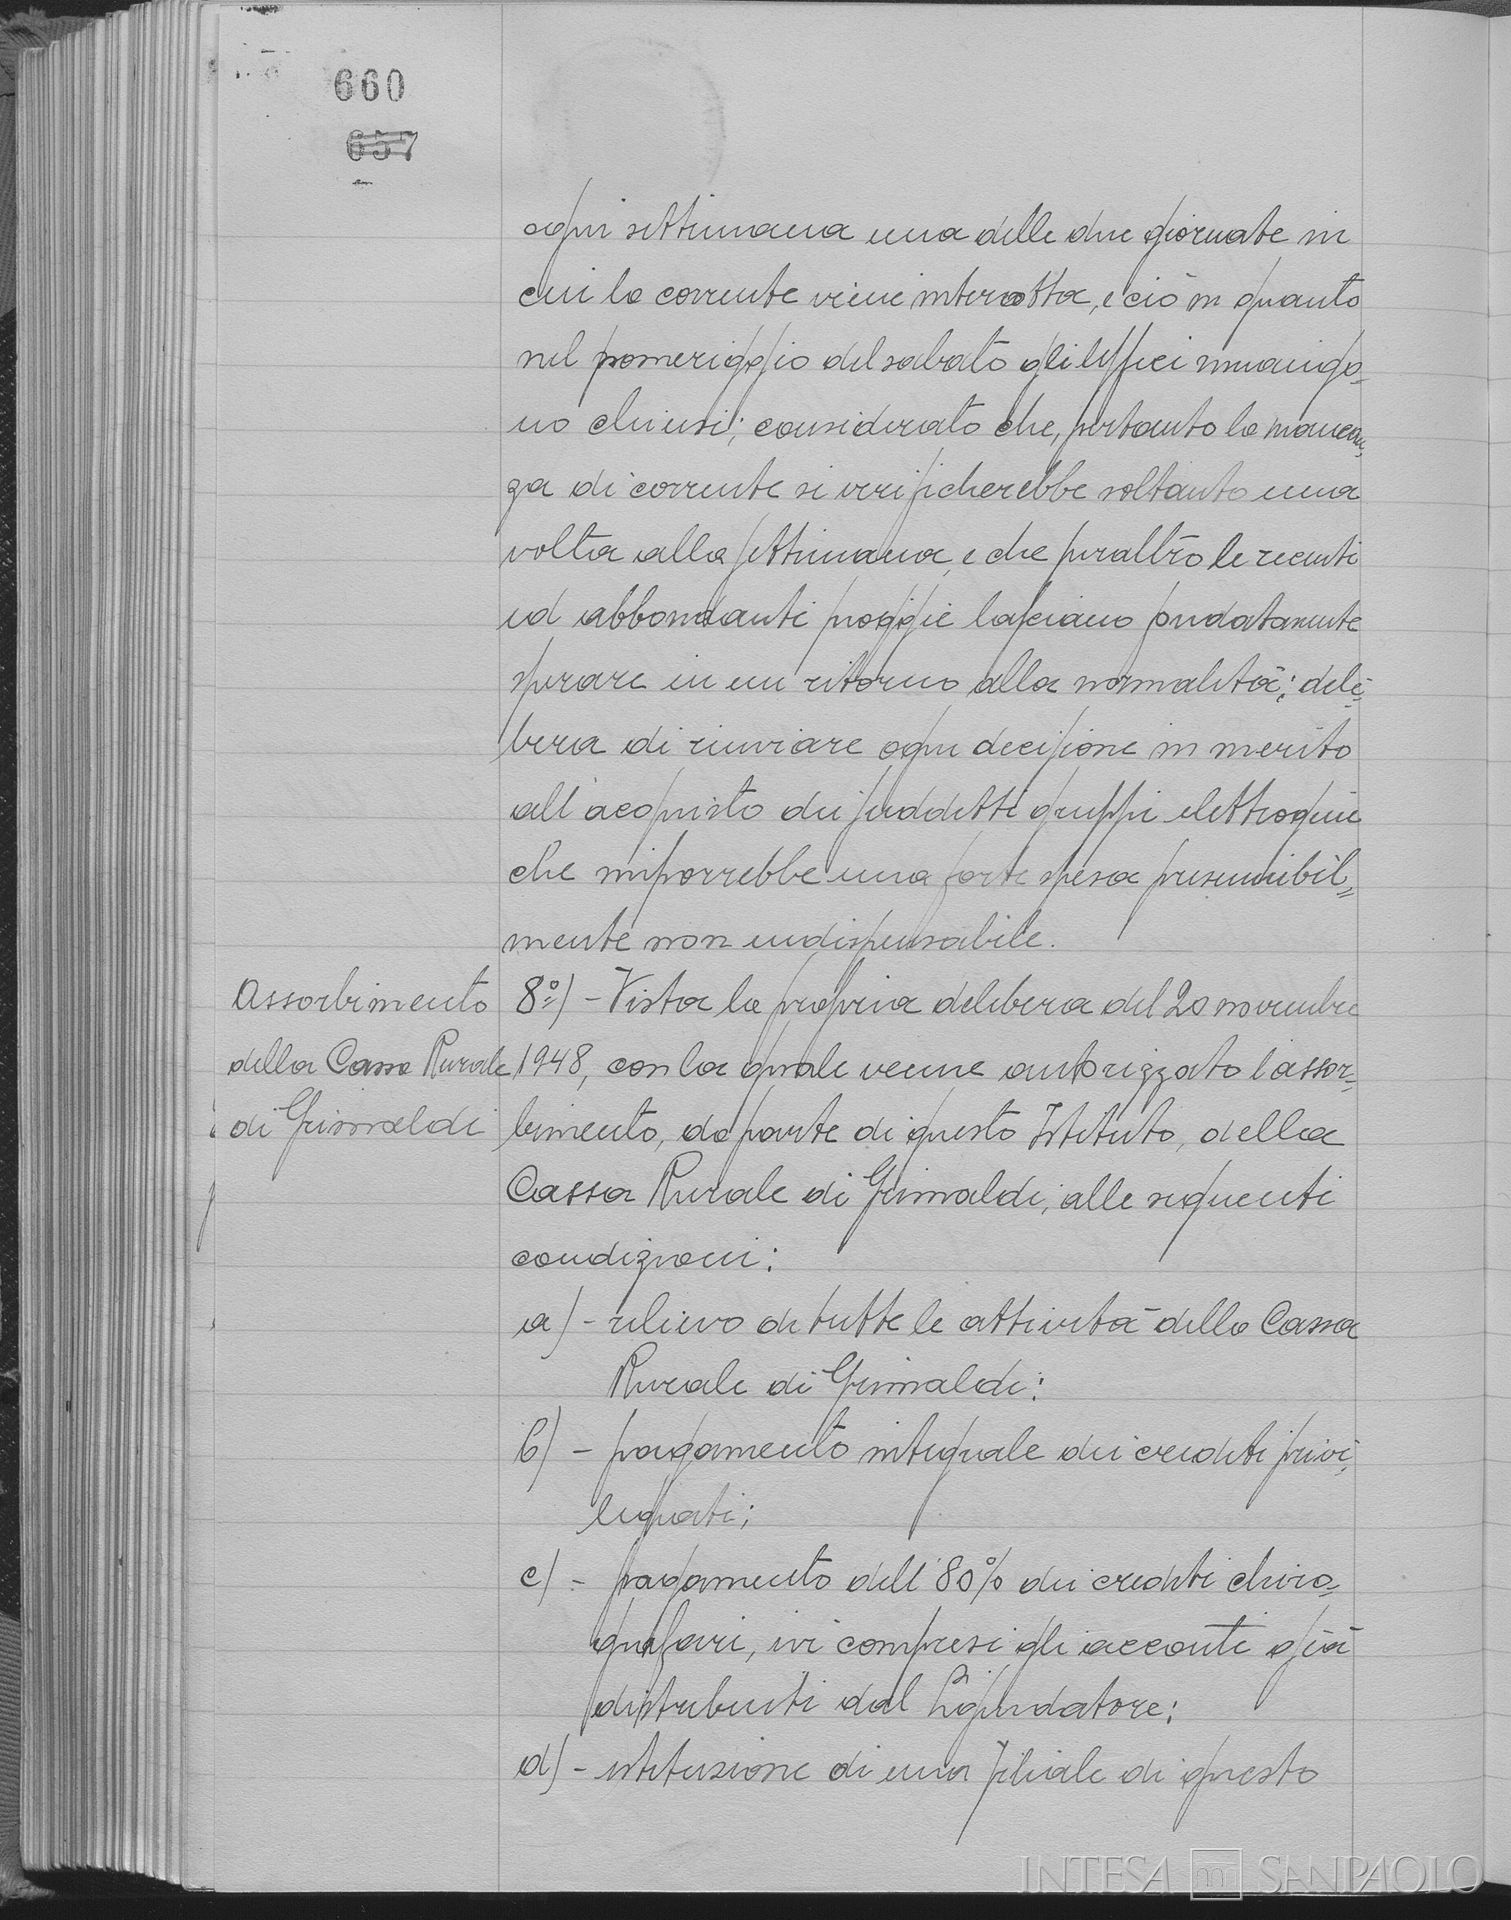 660
657
ogni settimana una delle due giornate in
cui la corrente viene interrotta, e ciò in quanto
nel pomeriggio del sabato gli Uffici rimango-
no chiusi; considerato che, pertanto la mancan-
za di corrente si verificherebbe soltanto una
volta alla settimana, e che peraltro le recenti
ed abbondanti pioggie lasciano fondatamente
sperare in un ritorno alla normalità; deli-
bera di rinviare ogni decisione in merito
all'acquisto dei suddetti gruppi elettrogeni
che imporrebbe una forte spesa presumibil=
mente non indispensabile.
Assorbimento
della Cassa Rurale
di Grimaldi
8º) - Vista la propria delibera del 20 novembre
1948, con la quale venne autorizzato l'assor-
bimento, da parte di questo Istituto, della
Cassa Rurale di Grimaldi, alle seguenti
condizioni:
a) - rilievo di tutte le attività della Cassa
Rurale di Grimaldi;
b) - pagamento integrale dei crediti privi-
legiati;
c) - pagamento dell'80% dei crediti chiro-
grafari, ivi compresi gli acconti già
distribuiti dal Liquidatore;
d) - istituzione di una filiale di questo
INTESA SANPAOLO